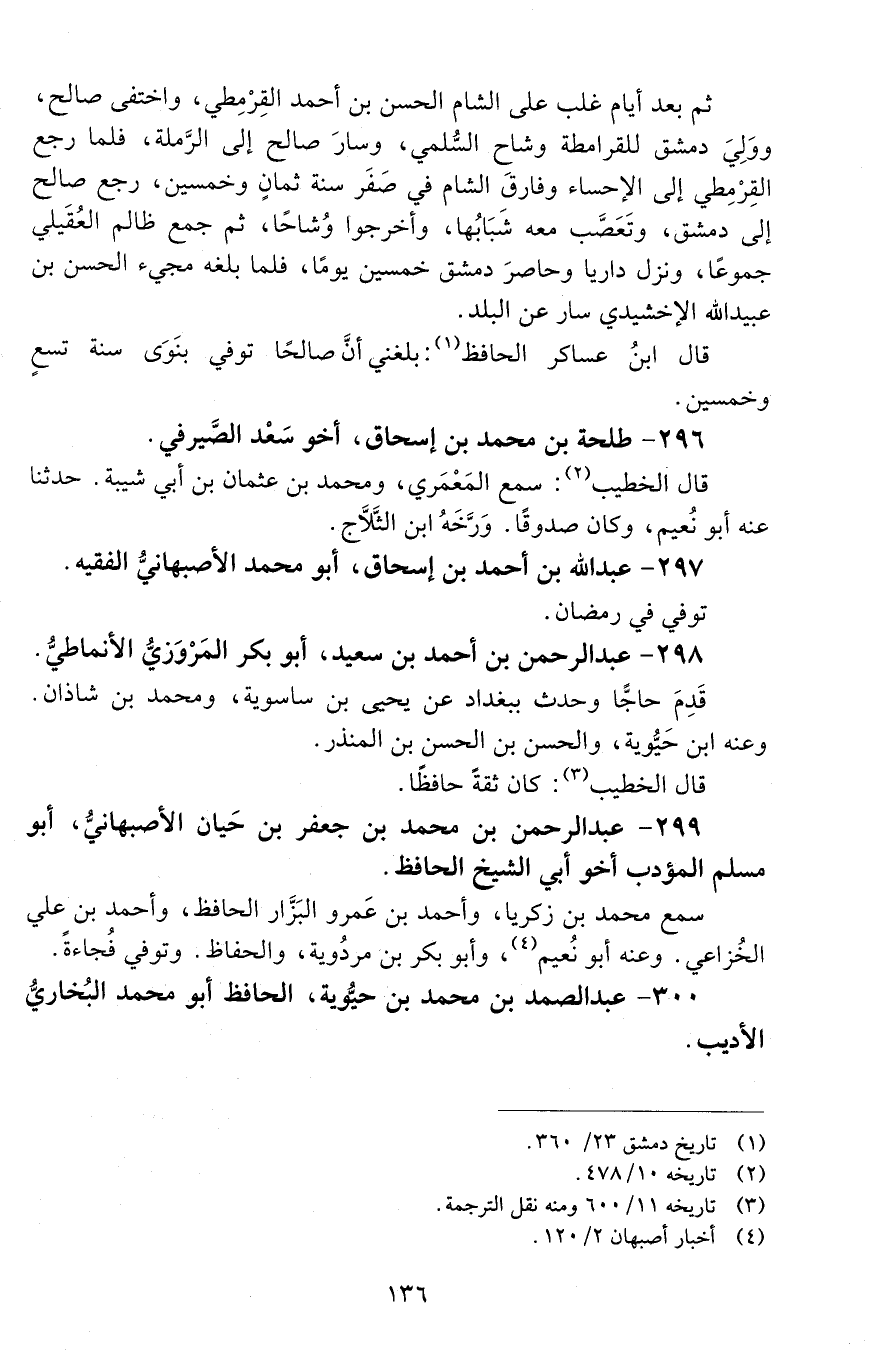 ثم بعد أيام غلب على الشام الحسن بن أحمد القِرْمِطي، واختفى صالح،
ووَلِيَ دمشق للقرامطة وشاح السُّلمي، وسارَ صالح إلى الرَّملة، فلما رجع
القِرْمِطي إلى الإحساء وفارقَ الشام في صَفَر سنة ثمانٍ وخمسين، رجع صالح
إلى دمشق، وتَعَصَّب معه شَبَابُها، وأخرجوا وُشاحًا، ثم جمع ظالم العُقَيلي
جموعًا، ونزل داريا وحاصرَ دمشق خمسين يومًا، فلما بلغه مجيء الحسن بن
عبيدالله الإخشيدي سار عن البلد.
قال ابنُ عساكر الحافظ(١): بلغني أنَّ صالحًا توفي بنَوَى سنة تسعٍ
وخمسين.
٢٩٦- طلحة بن محمد بن إسحاق، أخو سَعْد الصَّيرفي.
قال الخطيب(٢): سمع المَعْمَري، ومحمد بن عثمان بن أبي شيبة. حدثنا
عنه أبو نُعيم، وكان صدوقًا. وَرَّخَهُ ابن الثَّلاَّج.
٢٩٧- عبدالله بن أحمد بن إسحاق، أبو محمد الأصبهانيُّ الفقيه.
توفي في رمضان.
٢٩٨- عبدالرحمن بن أحمد بن سعيد، أبو بكر المَرْوَزيُّ الأنماطيُّ.
قَدِمَ حاجًّا وحدث ببغداد عن يحيى بن ساسوية، ومحمد بن شاذان.
وعنه ابن حَيُّوية، والحسن بن الحسن بن المنذر.
قال الخطيب(٣): كان ثقةً حافظًا.
٢٩٩- عبدالرحمن بن محمد بن جعفر بن حَيان الأصبهانيُّ، أبو
مسلم المؤدب أخو أبي الشيخ الحافظ.
سمع محمد بن زكريا، وأحمد بن عَمرو البَزَّار الحافظ، وأحمد بن علي
الخُزاعي. وعنه أبو نُعيم(٤)، وأبو بكر بن مردُوية، والحفاظ. وتوفي فُجاءةً.
٣٠٠- عبدالصمد بن محمد بن حيُّوية، الحافظ أبو محمد البُخاريُّ
الأديب.
(١) تاريخ دمشق ٢٣/ ٣٦٠.
(٢) تاريخه ١٠/ ٤٧٨.
(٣) تاريخه ١١/ ٦٠٠ ومنه نقل الترجمة.
(٤) أخبار أصبهان ٢/ ١٢٠.
١٣٦